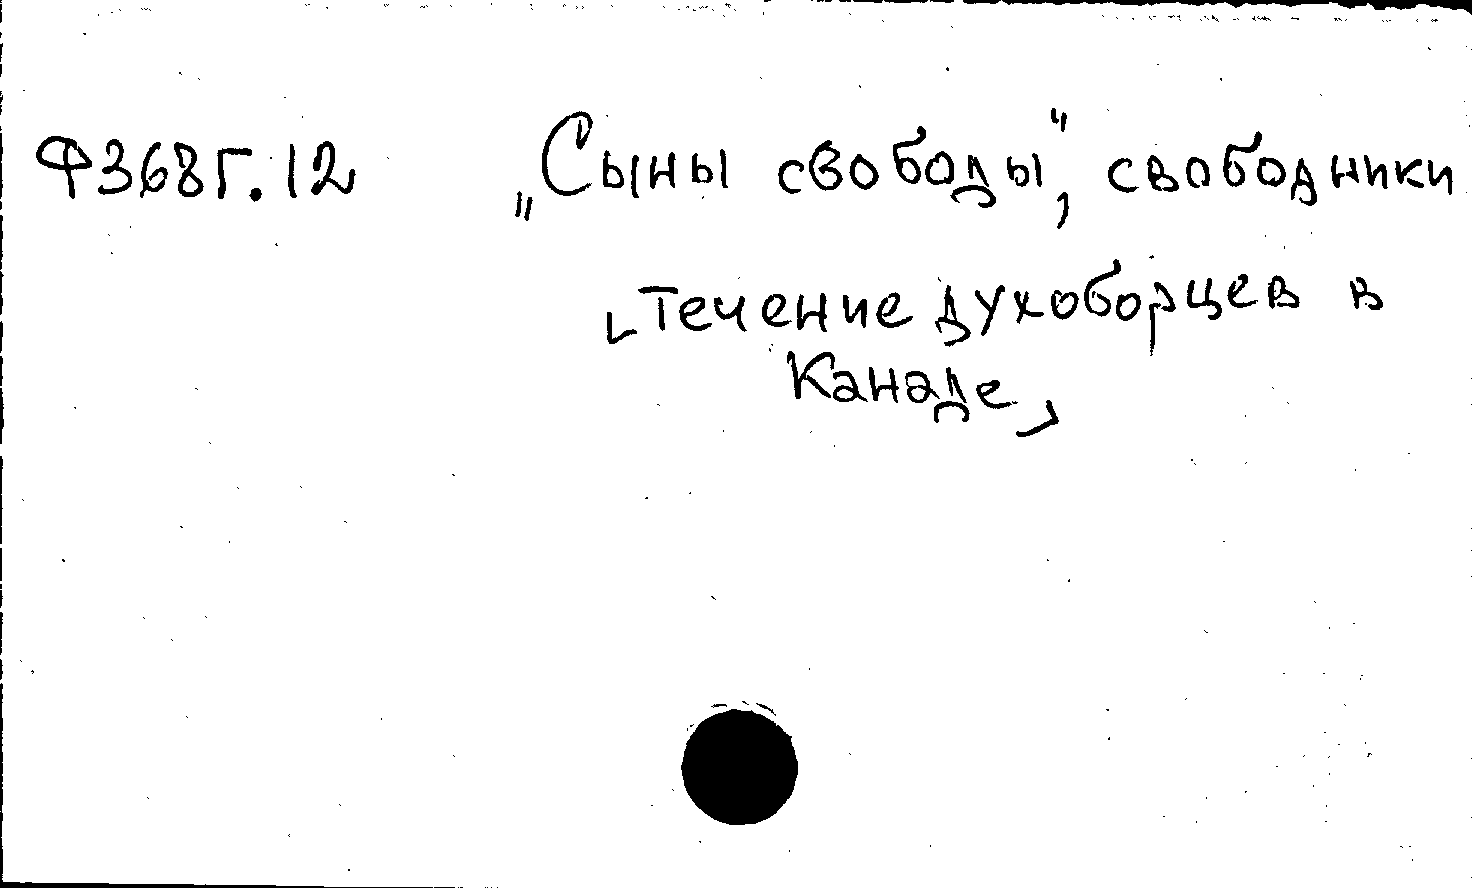 Ф368Г.12 „Сыны свободы", свободники
[течение духоборцев в
Канаде]